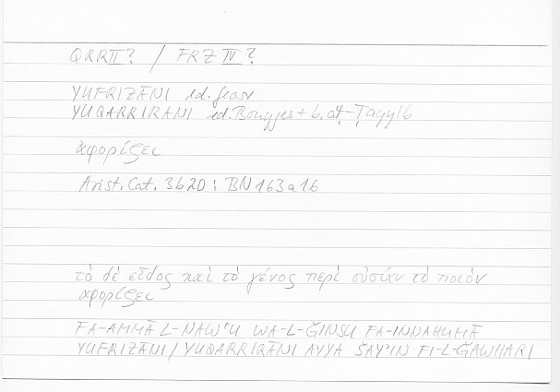 QRRII? / FRZ IV?
YUFRIZĀNI ed. Georr
YUQARRIRĀNI ed. Bouyges + b. aṭ-Ṭayyib
ἀφορίζει
Arist. Cat. 3b20 : BN 163a16
τὸ δὲ εἶδος καὶ τὸ γένος περὶ οὐσίαν τὸ ποιὸν
ἀφορίζει
FA-AMMĀ L-NAWʿU WA-L-ǦINSU FA-INNAHUMĀ
YUFRIZĀNI / YUQARRIRĀNI AYYA ŠAYʾIN FI-L-ǦAWHARI